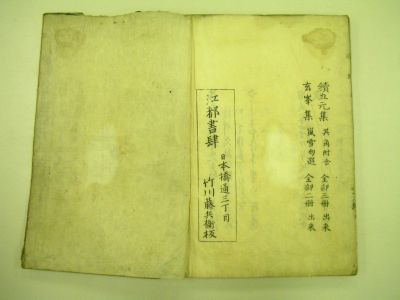 續五元集 其角附合 全部三冊 出來
玄峯集 嵐雪句選 全部二冊 出來
江都書肆 日本橋通三丁目
竹川藤兵衞板